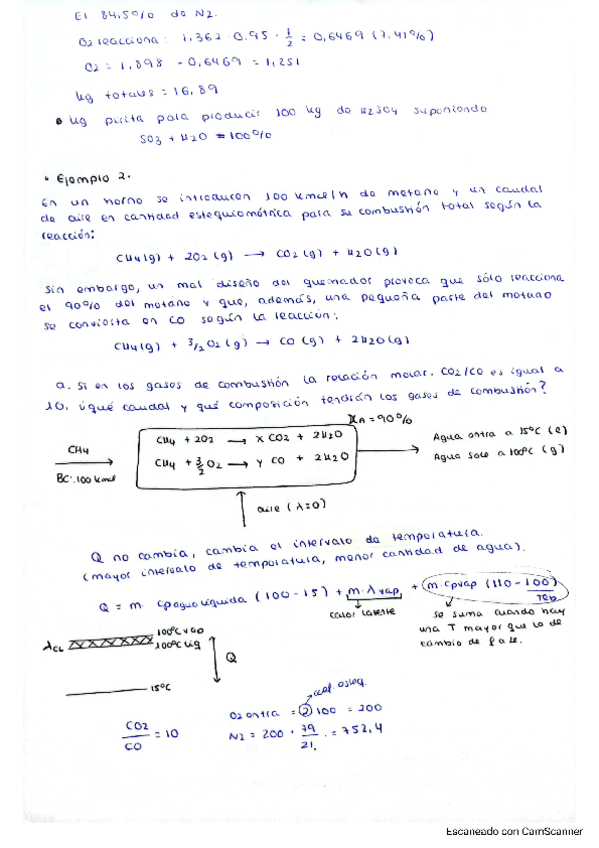 El 84.5% de N2.
O2 reacciona: 1,362 · 0.95 · 1/2 = 0,6469 (7.41%)
O2 = 1,898 - 0,6469 = 1,251
kg totales = 16,89
• kg pirita para producir 100 kg de H2SO4 suponiendo
SO3 + H2O = 100%
• Ejemplo 2.
En un horno se introducen 100 kmol/h de metano y un caudal
de aire en cantidad estequiométrica para su combustión total según la
reacción:
CH4(g) + 2O2(g) → CO2(g) + H2O(g)
Sin embargo, un mal diseño del quemador provoca que sólo reacciona
el 90% del metano y que, además, una pequeña parte del metano
se convierta en CO según la reacción:
CH4(g) + 3/2 O2(g) → CO(g) + 2H2O(g)
a. Si en los gases de combustión la relación molar. CO2/CO es igual a
10, ¿qué caudal y qué composición tendrán los gases de combustión?
XA = 90%
CH4
BC: 100 kmol
CH4 + 2O2 → X CO2 + 2H2O
CH4 + 3/2 O2 → Y CO + 2H2O
Agua entra a 15°C (l)
Agua sale a 100°C (g)
aire (λ=0)
Q no cambia, cambia el intervalo de temperatura.
(mayor intervalo de temperatura, menor cantidad de agua).
Q = m · Cp agua líquida (100-15) + m · λvap + m · Cpvap (110-100)
Teb
calor latente
se suma cuando hay
una T mayor que la de
cambio de fase.
100°C vap
100°C liq
Q
15°C
CO2/CO = 10
O2 entra = 2 · 100 = 200
N2 = 200 · 79/21 = 752,4
Escaneado con CamScanner